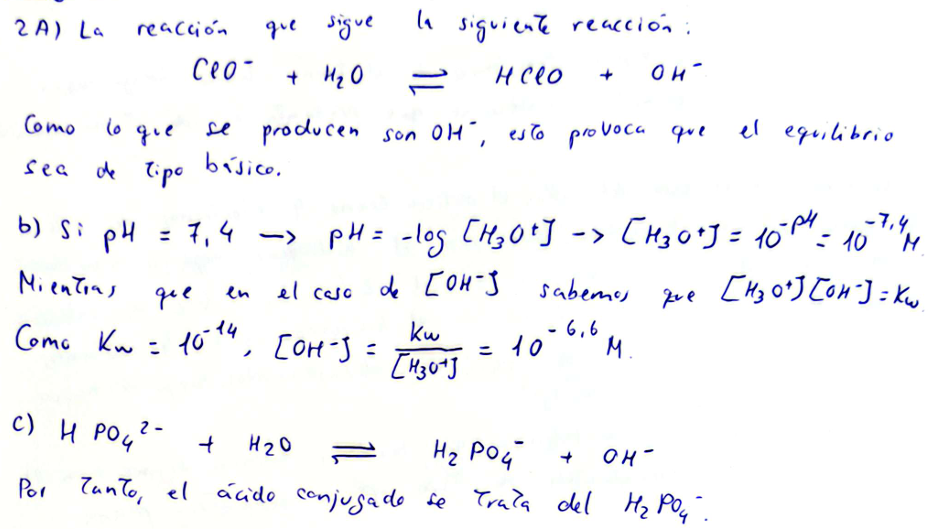 2A) La reacción que sigue la siguiente reacción:
ClO⁻ + H₂O ⇌ HClO + OH⁻
Como lo que se producen son OH⁻, esto provoca que el equilibrio
sea de tipo básico.
b) Si pH = 7,4 → pH = -log [H₃O⁺] → [H₃O⁺] = 10^-pH = 10^-7,4 M
Mientras que en el caso de [OH⁻] sabemos que [H₃O⁺][OH⁻] = Kw
Como Kw = 10^-14, [OH⁻] = Kw/[H₃O⁺] = 10^-6,6 M.
c) HPO₄²⁻ + H₂O ⇌ H₂PO₄⁻ + OH⁻
Por tanto, el ácido conjugado se trata del H₂PO₄⁻.